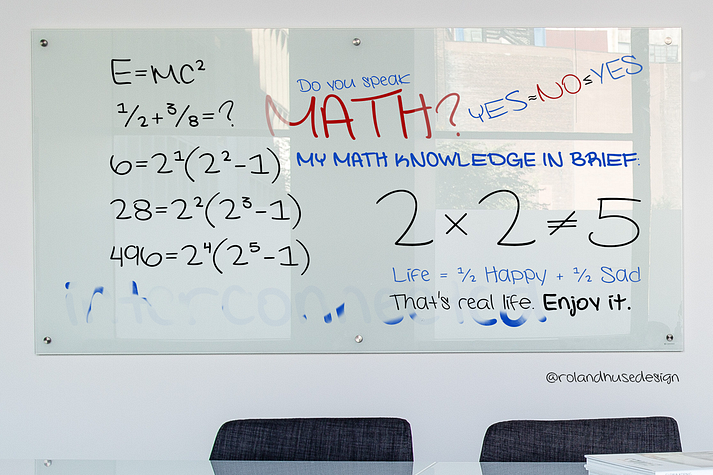 E=MC²
½+⅜=?
6=2¹(2²-1)
28=2²(2³-1)
496=2⁴(2⁵-1)
Do you speak
MATH?
YES≈NO≤YES
MY MATH KNOWLEDGE IN BRIEF:
2×2≠5
Life = ½ Happy + ½ Sad
That's real life. Enjoy it.
@rolandhusedesign